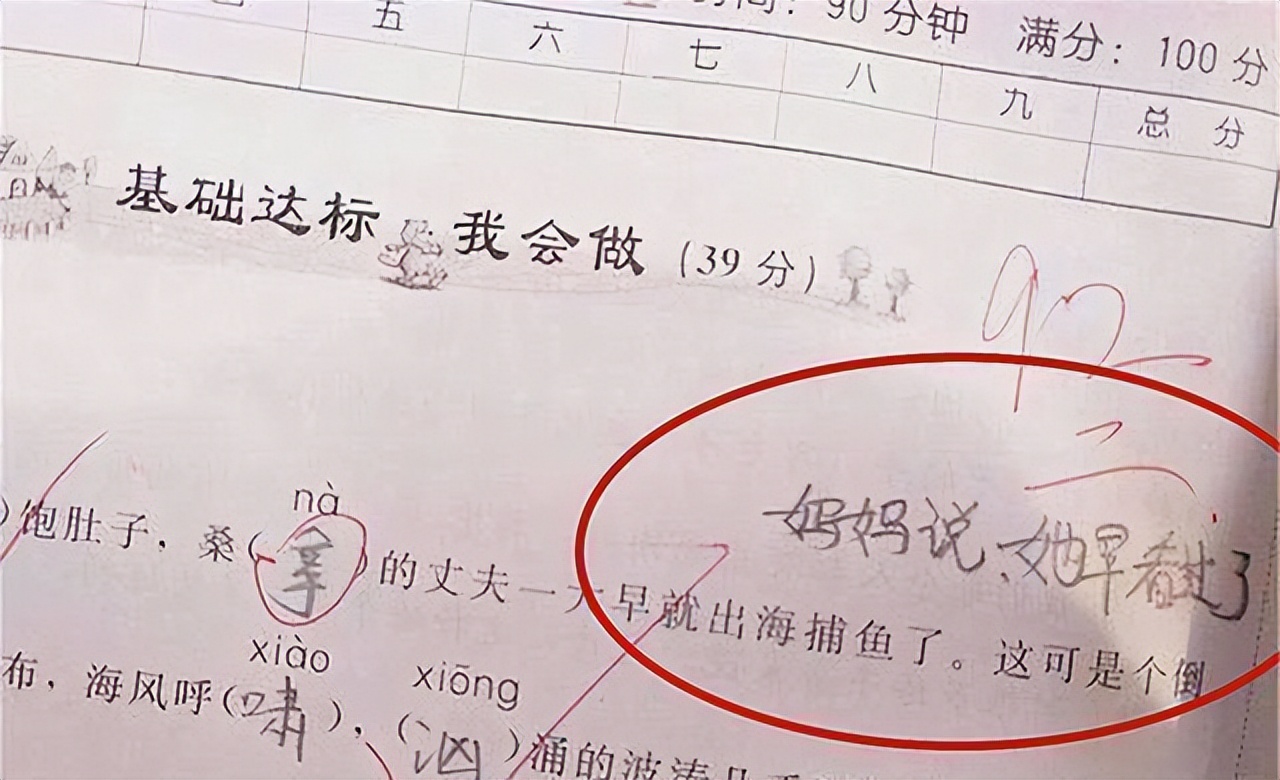 时间：90分钟 满分：100分
五 六 七 八 九 总分
基础达标 我会做（39分）
92
妈妈说、她早看过了
nà
）饱肚子，桑（拿）的丈夫一大早就出海捕鱼了。这可是个倒
xiào xiōng
布，海风呼（啸），（汹）涌的波涛